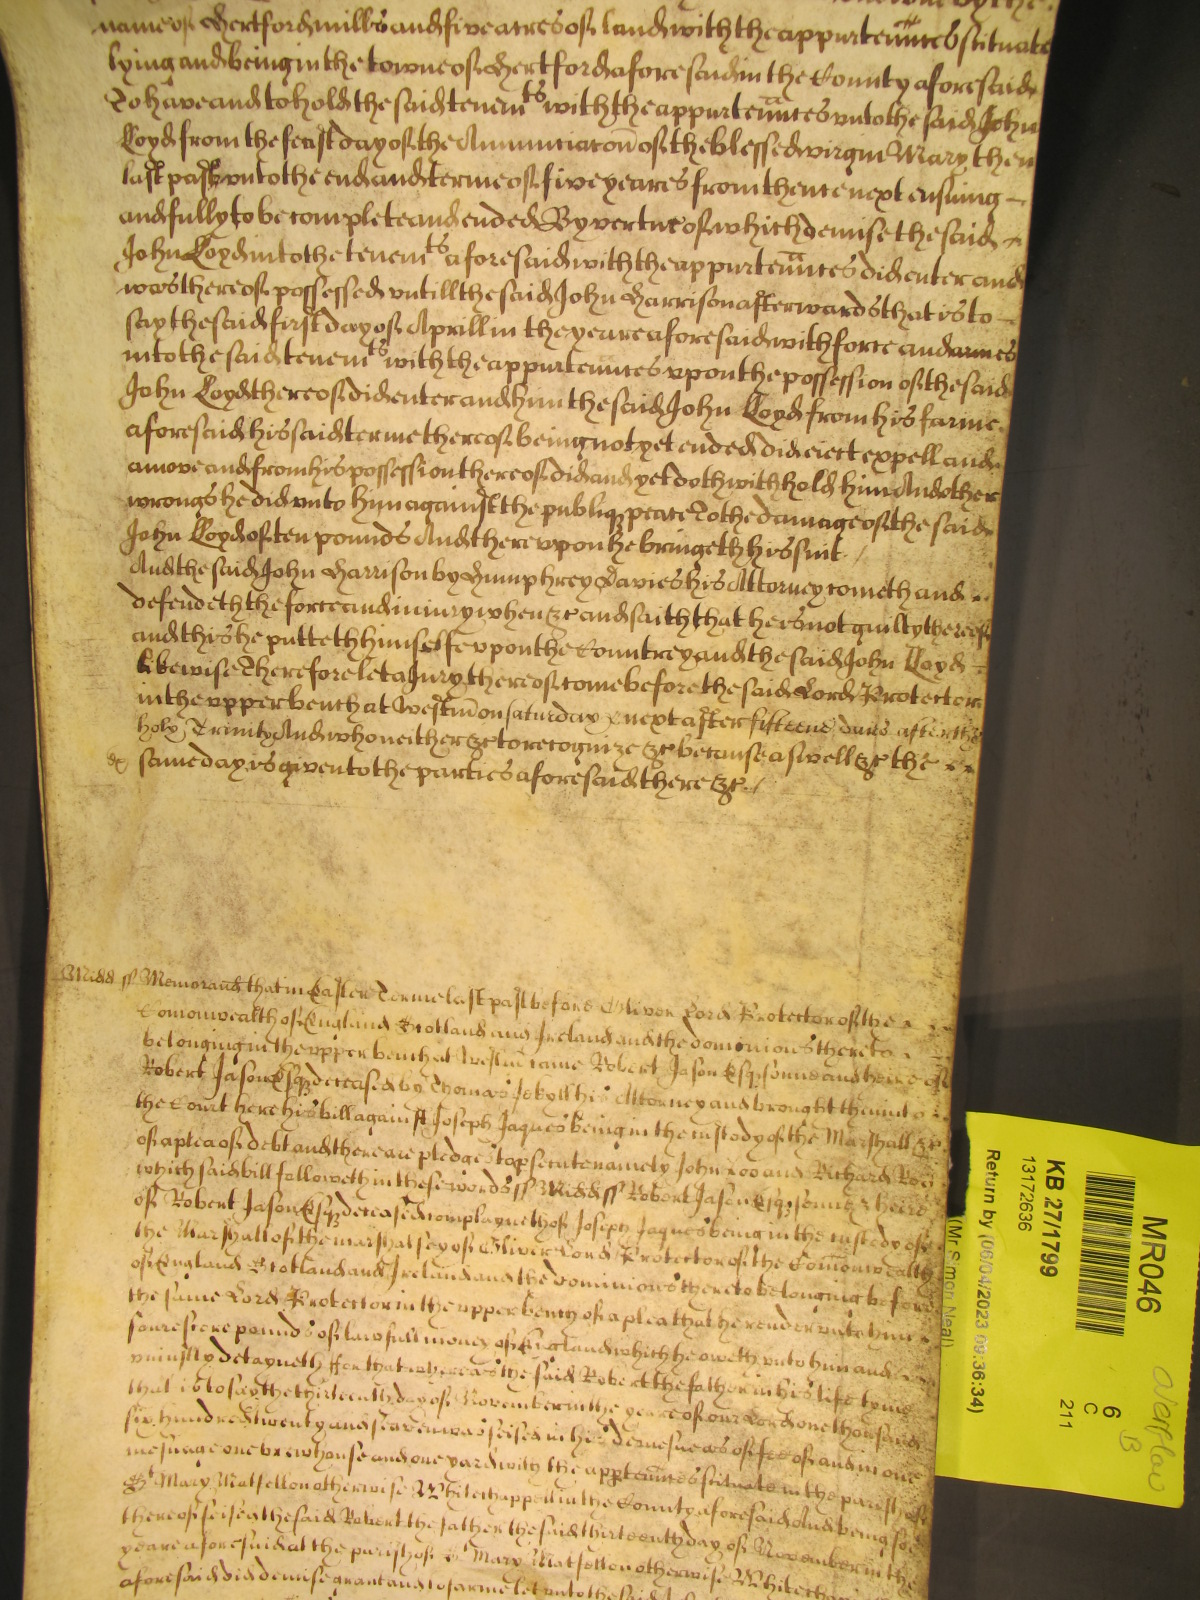 name of Hertford mills and five acres of land with the appurtennces scituate
lying and being in the towne of Hertford aforesaid in the County aforesaid
To have and to hold the said tenemts with the appurtennces unto the said John
Loyd from the feast day of the Annunciacon of the blessed virgin Mary then
last past unto the end and terme of five yeares from thence next ensuing
and fully to be compleate and ended By vertue of which demise the said
John Loyd into the tenemts aforesaid with the appurtennces did enter and
was thereof possessed untill the said John Harrison afterwards that is to
say the said first day of Aprill in the yeare aforesaid with force and armes
into the said tenemts with the appurtennces upon the possession of the said
John Loyd thereof did enter and him the said John Loyd from his farme
aforesaid his said terme thereof being not yet ended did eiect expell and
amove and from his possession thereof did and yet doth withhold him And other
wrongs he did unto him against the publiq peace To the damage of the said
John Loyd of ten pounds And thereupon he bringeth his suit
And the said John Harrison by Humphrey Davies his Attorney cometh and
defendeth the force and iniury when &c and saith that he is not guilty thereof
and this he putteth himselfe upon the Countrey and the said John Loyd
likewise Therefore let a Jury thereof come before the said Lord Protector
in the upper bench at Westm on Saturday next after fifteene dais after the
holy Trinity And who neither &c to recognize &c because aswell &c the
same day is given to the parties aforesaid there &c
Midd ss Memorand that in Easter Terme last past before Oliver Lord Protector of the
Comonwealth of England Scotland and Ireland and the dominions thereto
belonging in the upper bench at Westm came Robert Jason Esq sonne and heire of
Robert Jason Esq deceased by Thomas Jekyll his Attorney and brought then into
the Court here his bill against Joseph Jaques being in the custody of the Marshall &c
of a plea of debt and there are pledges to psecute namely John Doo and Richard Roo
which said bill followeth in these words ss Midd ss Robert Jason Esq sonne & heire
of Robert Jason Esq deceased complayneth of Joseph Jaques being in the custody of
the Marshall of the marshalsey of Oliver Lord Protector of the Comonwealth
of England Scotland and Ireland and the dominions thereto belonging before
the same Lord Protector in the upper bench of a plea that he render unto him
fourescore pounds of lawfull money of England which he oweth unto him and
uniustly detayneth ffor that whereas the said Robert the father in his life tyme
that is to say the thirteenth day of November in the yeare of our Lord one thousand
six hundred twenty and seaven was seised in his demesne as of fee of and in one
mesuage one brewhouse and one yard with the appurtennces scituate in the parish of
St Mary Matsellon otherwise Whitechappell in the County aforesaid And being soe
thereof seised the said Robert the father the said thirteenth day of November in the
yeare aforesaid at the parish of St Mary Matsellon otherwise
aforesaid did demise grant and to farme let unto the said
MR046
KB 27/1799
13172636
Return by (06/04/2023 09:36:34)
(Mr Simon Neal)
6
C
211
Overflow
B